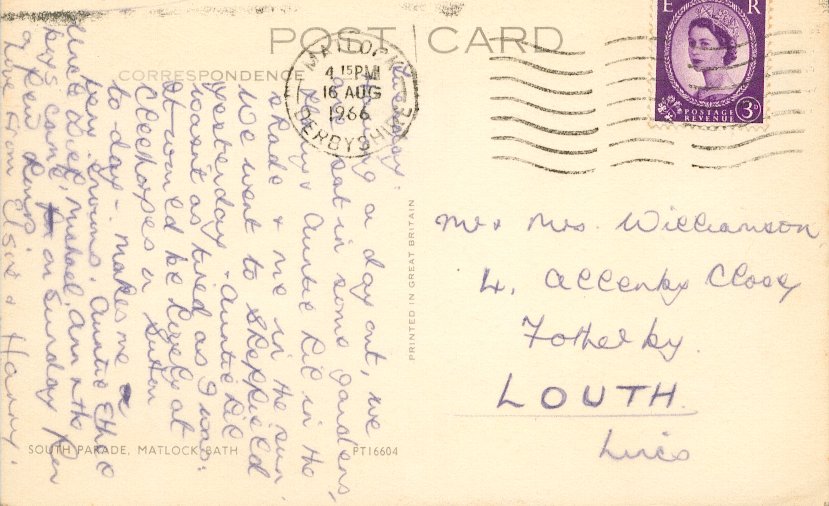 POST CARD
CORRESPONDENCE
MATLOCK
4 15 PM
16 AUG
1966
DERBYSHIRE
E R
POSTAGE
REVENUE
3D
Tuesday.
a day out, we
sat in some gardens,
& Auntie Lil in the
shade & me in the sun.
We went to Sheffield
yesterday & Auntie Lil
wasn't as tired as I was.
It would be lovely at
Cleethorpes or Sutton
to day. makes me a
new. Auntie Ethel
Uncle Michael, Ann & the
boys came on Sunday for
a few hours.
Love from Elsie & Harry.
PRINTED IN GREAT BRITAIN
Mr & Mrs. Williamson
4. Allenby Close
Fotherby.
LOUTH
Lincs
SOUTH PARADE, MATLOCK BATH PT16604